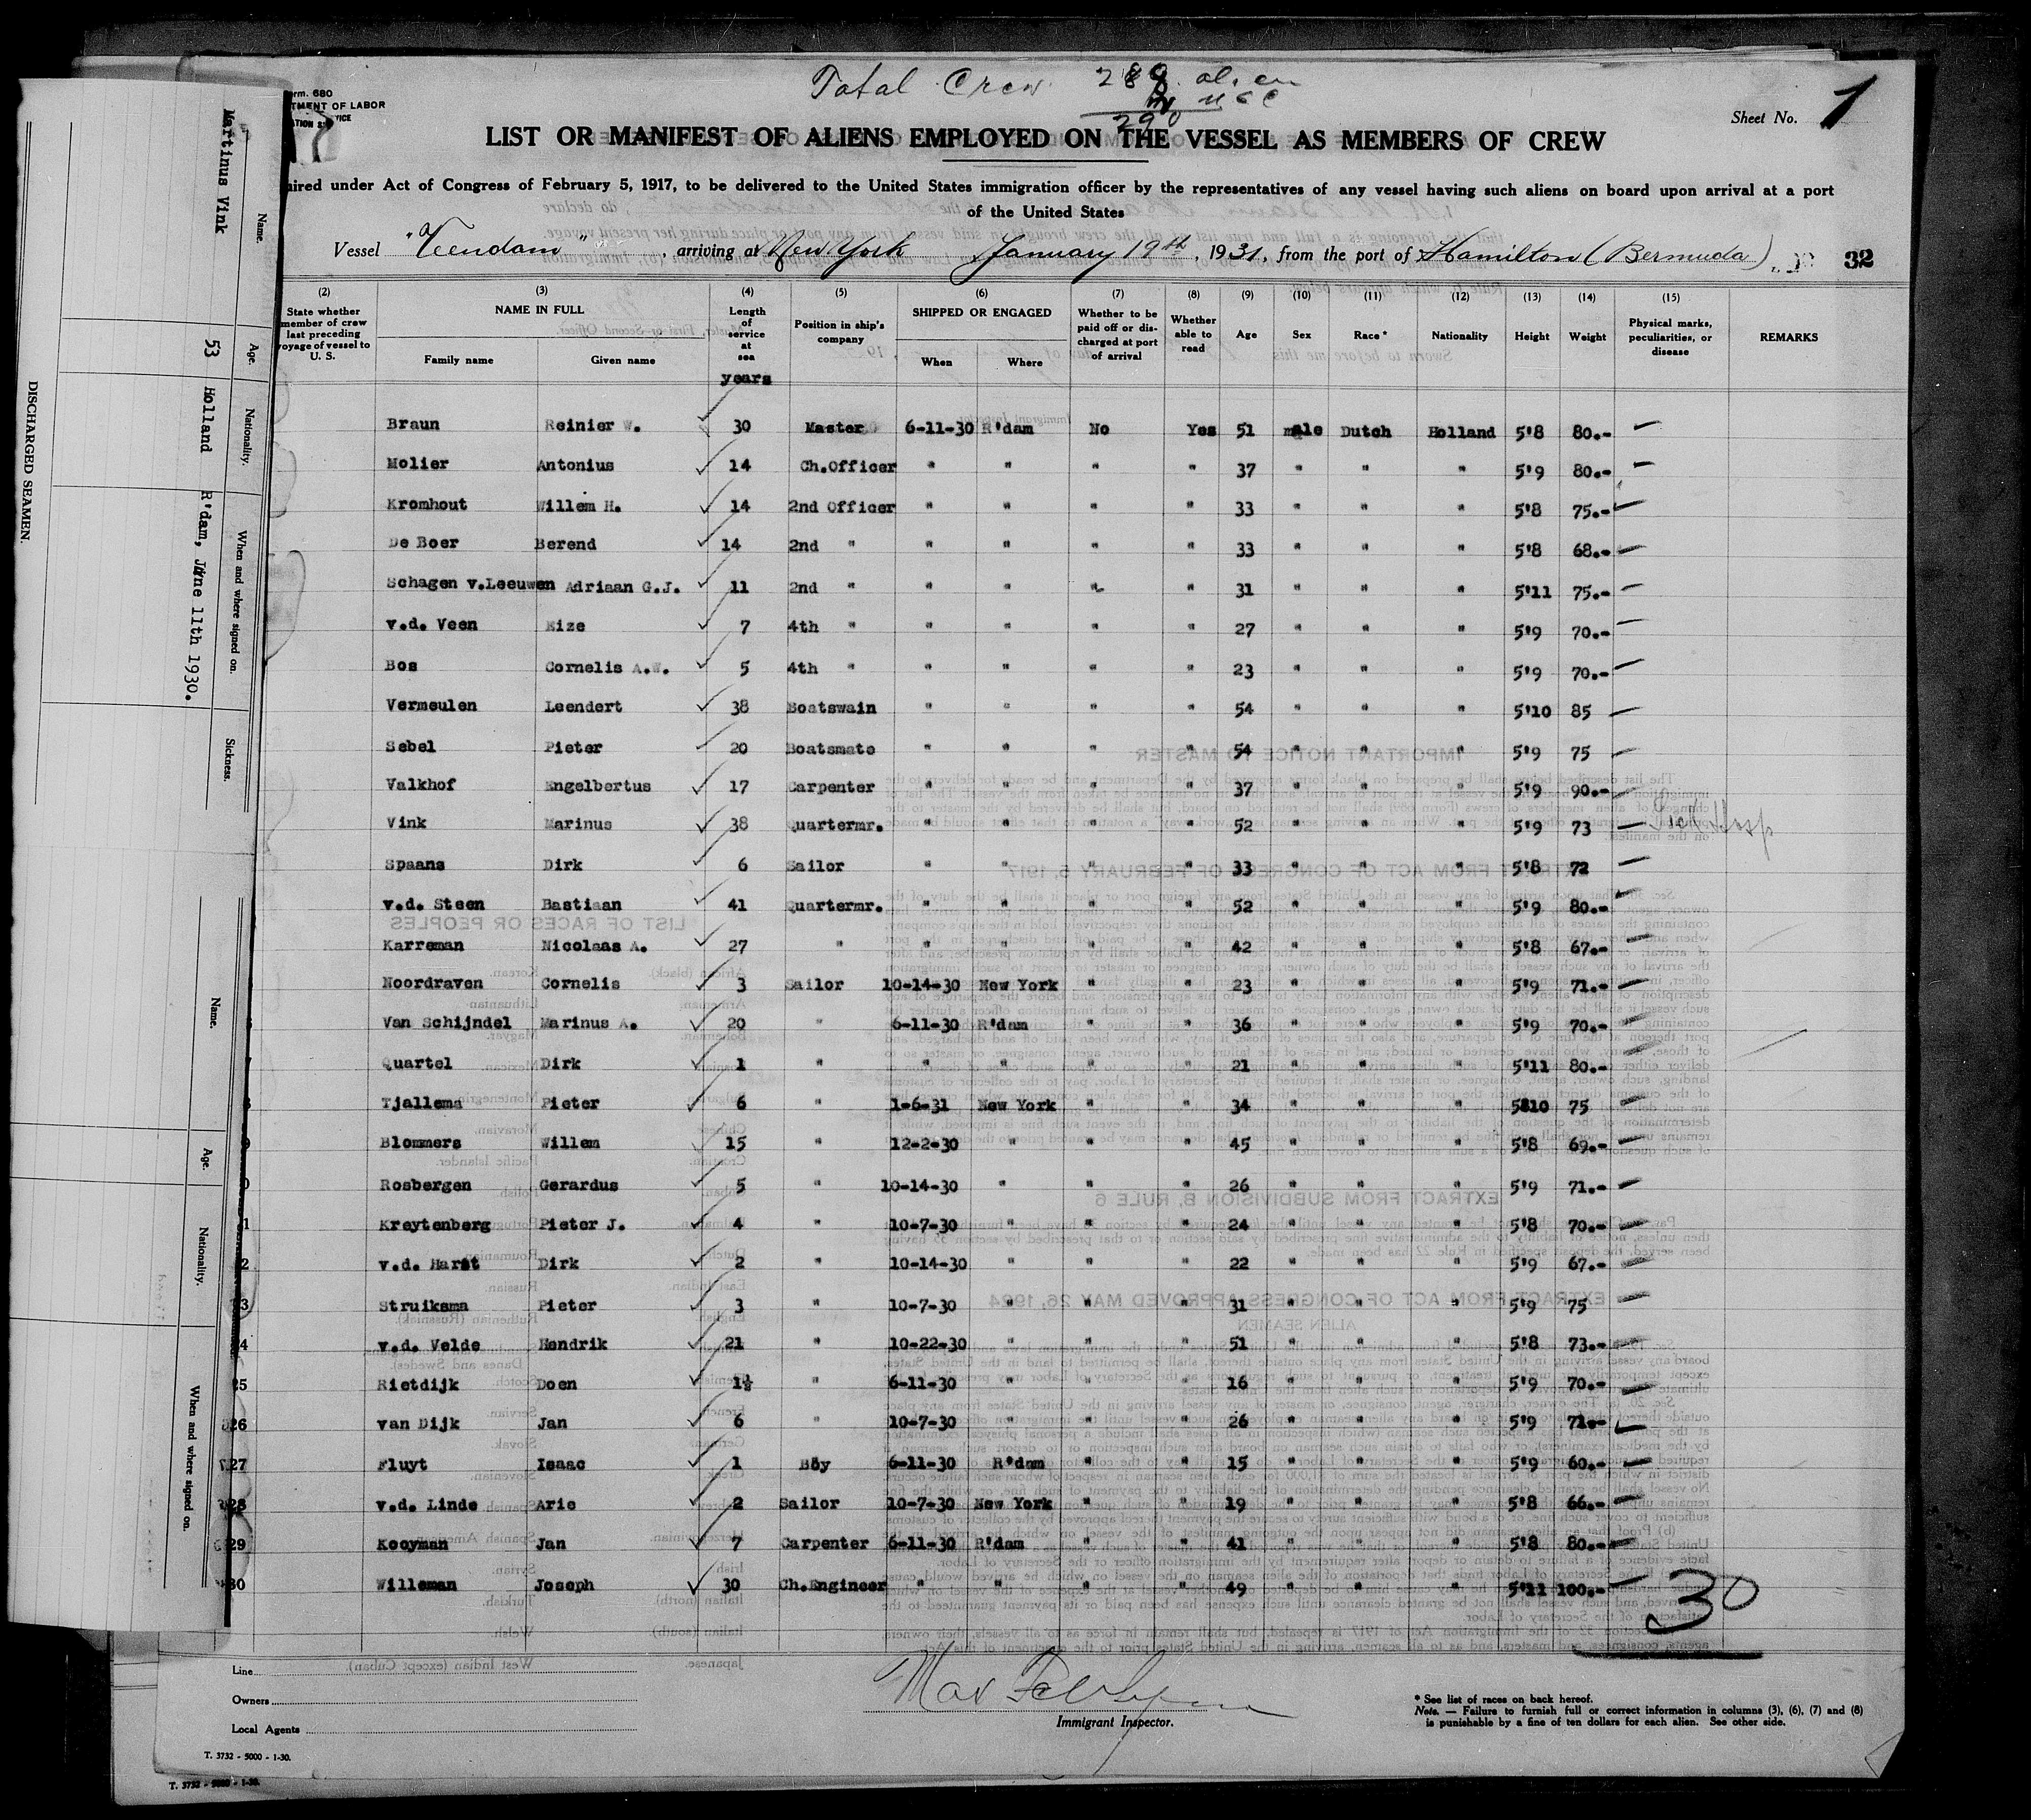 Total Crew 280 alien
U S C
290
Form. 680
Sheet No. 1
LIST OR MANIFEST OF ALIENS EMPLOYED ON THE VESSEL AS MEMBERS OF CREW
under Act of Congress of February 5, 1917, to be delivered to the United States immigration officer by the representatives of any vessel having such aliens on board upon arrival at a port
of the United States
Vessel "Veendam", arriving at New York January 19th, 1931, from the port of Hamilton (Bermuda) 32
(2) (3) (4) (5) (6) (7) (8) (9) (10) (11) (12) (13) (14) (15)
State whether member of crew last preceding voyage of vessel to U. S. NAME IN FULL Family name Given name Length of service at sea years Position in ship's company SHIPPED OR ENGAGED When Where Whether to be paid off or discharged at port of arrival Whether able to read Age Sex Race* Nationality Height Weight Physical marks, peculiarities, or disease REMARKS
Braun Reinier W. 30 Master 6-11-30 R'dam No Yes 51 male Dutch Holland 5'8 80.-
Molier Antonius 14 Ch.Officer " " " " 37 " " " 5'9 80.-
Kromhout Willem H. 14 2nd Officer " " " " 33 " " " 5'8 75.-
De Boer Berend 14 2nd " " " " " 33 " " " 5'8 68.-
Schagen v.Leeuwen Adriaan G.J. 11 2nd " " " " " 31 " " " 5'11 75.-
v.d. Veen Eize 7 4th " " " " " 27 " " " 5'9 70.-
Bos Cornelis A.W. 5 4th " " " " " 23 " " " 5'9 70.-
Vermeulen Leendert 38 Boatswain " " " " 54 " " " 5'10 85
Sebel Pieter 20 Boatsmate " " " " 54 " " " 5'9 75
Valkhof Engelbertus 17 Carpenter " " " " 37 " " " 5'9 90.-
Vink Marinus 38 Quartermr. " " " " 52 " " " 5'9 73 Hosp
Spaans Dirk 6 Sailor " " " " 33 " " " 5'8 72
v.d. Steen Bastiaan 41 Quartermr. " " " " 52 " " " 5'9 80.-
Karreman Nicolaas A. 27 " " " " " 42 " " " 5'8 67.-
Noordraven Cornelis 3 Sailor 10-14-30 New York " " 23 " " " 5'9 71.-
Van Schijndel Marinus A. 20 " 6-11-30 R'dam " " 36 " " " 5'9 70.-
Quartel Dirk 1 " " " " " 21 " " " 5'11 80.-
Tjallema Pieter 6 " 1-6-31 New York " " 34 " " " 5'10 75
Blommers Willem 15 " 12-2-30 " " " 45 " " " 5'8 69.-
Rosbergen Gerardus 5 " 10-14-30 " " " 26 " " " 5'9 71.-
Kreytenberg Pieter J. 4 " 10-7-30 " " " 24 " " " 5'8 70.-
v.d. Harst Dirk 2 " 10-14-30 " " " 22 " " " 5'9 67.-
Struiksma Pieter 3 " 10-7-30 " " " 31 " " " 5'9 75
v.d. Velde Hendrik 21 " 10-22-30 " " " 51 " " " 5'8 73.-
25 Rietdijk Doen 1½ " 6-11-30 " " " 16 " " " 5'9 70.-
26 van Dijk Jan 6 " 10-7-30 " " " 26 " " " 5'9 71.-
27 Fluyt Isaac 1 Boy 6-11-30 R'dam " " 15 " " " 5'9 60.-
28 v.d. Linde Arie 2 Sailor 10-7-30 New York " " 19 " " " 5'8 66.-
29 Kooyman Jan 7 Carpenter 6-11-30 R'dam " " 41 " " " 5'8 80.-
30 Willeman Joseph 30 Ch.Engineer " " " " 49 " " " 5'11 100.-
30
Line
Owners
Local Agents
Immigrant Inspector.
* See list of races on back hereof.
Note. — Failure to furnish full or correct information in columns (3), (6), (7) and (8)
is punishable by a fine of ten dollars for each alien. See other side.
T. 3732 - 5000 - 1-30.
T. 3732 - 5000 - 1-30.
DISCHARGED SEAMEN.
Name. Age. Nationality. When and where signed on. Sickness.
Martinus Vink 53 Holland R'dam, June 11th 1930.
Name. Age. Nationality. When and where signed on.